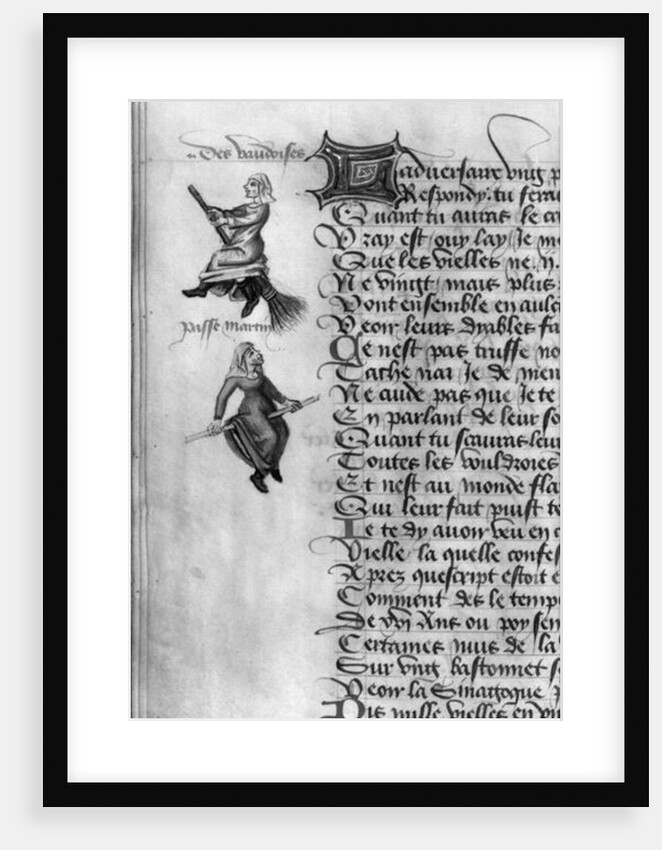 Des vaudoises
Passe martin
Ladversaire vng p
Respondy: tu feras
Quant tu auras le ca
Vray est ouy lay Je me
Que les vielles ne .ij.
Ne vingt mais plus
Vont ensemble en aulc
Veoir leurs dyables fa
Ce nest pas truffe no
Tache nar Je de men
Ne cuide pas que Je te
En parlant de leur so
Quant tu scauras leur
Toutes les vouldroies
Et nest au monde fla
Qui leur fait puist te
Je te dy auoir veu en
Vielle la quelle confes
Aprez quescript estoit e
Comment des le temps
De xvi Ans ou poy sen
Certaines nuis de la
Sur vng bastonnet s
Veoir la Sinagoque
Dis mille vielles en